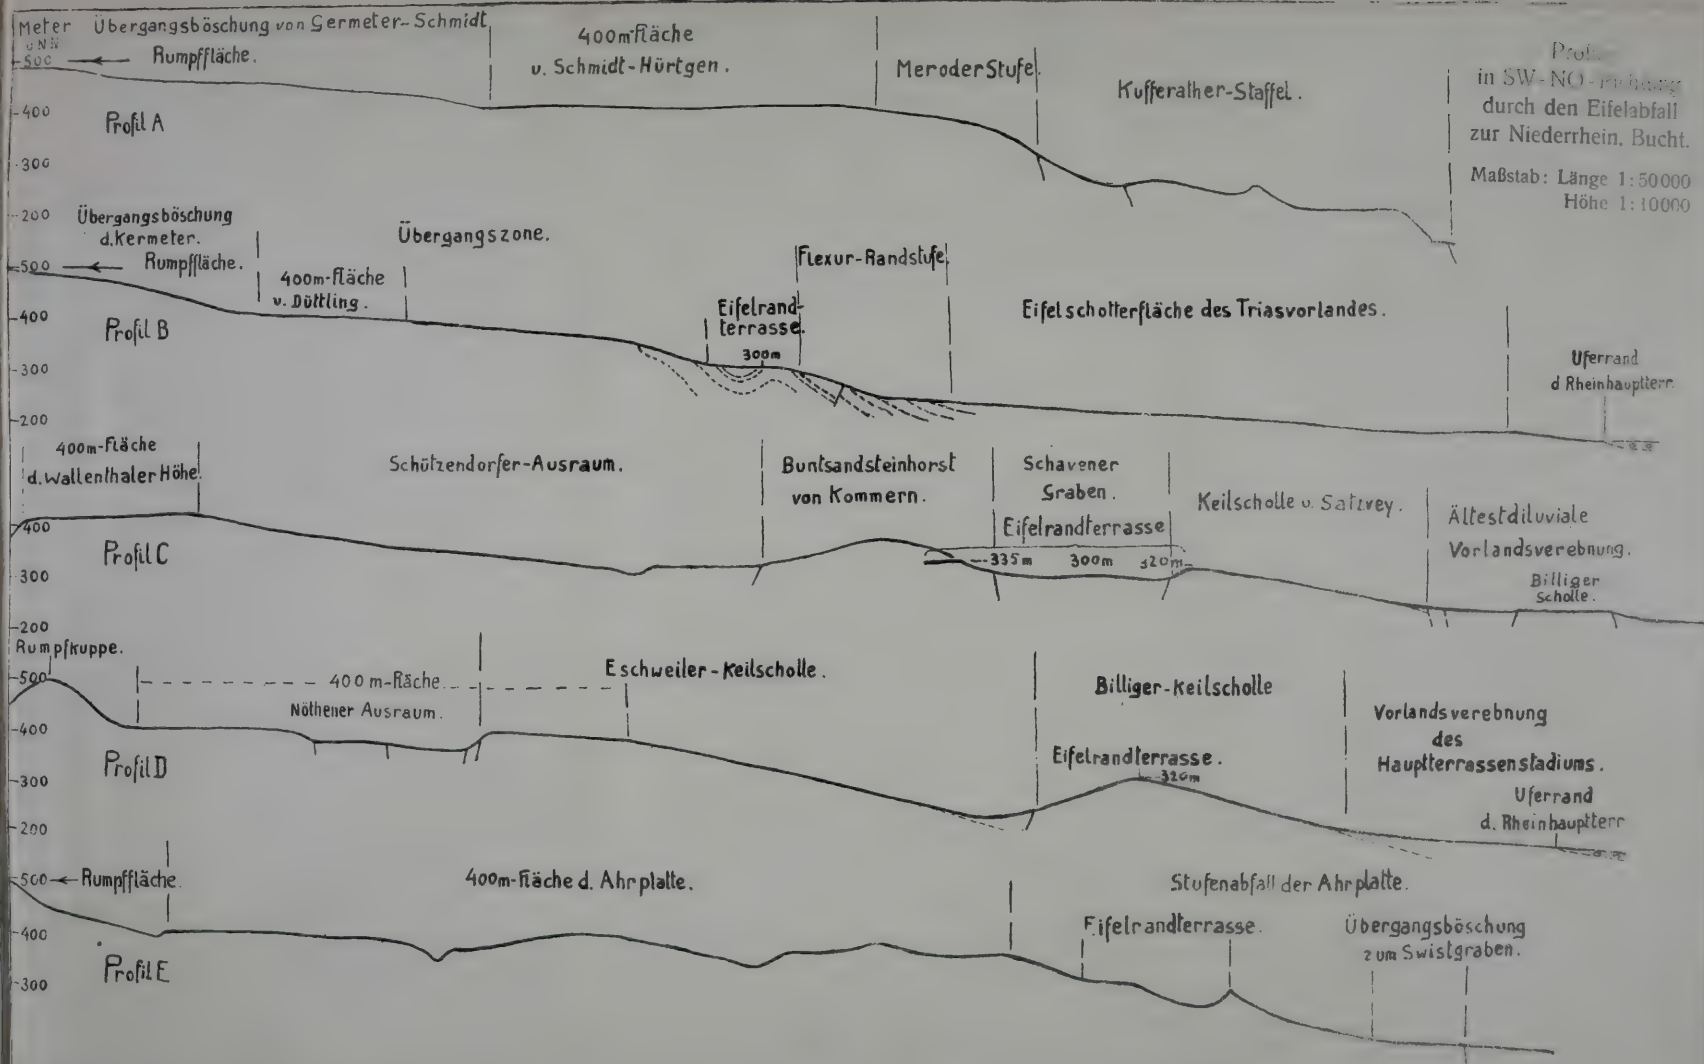 Meter
ü NN
Übergangsböschung von Germeter-Schmidt
Rumpffläche.
400m-Fläche
v. Schmidt-Hürtgen.
Meroder Stufe
Kufferather-Staffel.
in SW-NO-
durch den Eifelabfall
zur Niederrhein. Bucht.
Maßstab: Länge 1:50000
Höhe 1:10000
500
400
300
200
Profil A
Übergangsböschung
d. Kermeter.
Rumpffläche.
400m-Fläche
v. Düttling.
Übergangszone.
Eifelrand-
terrasse.
300m
Flexur-Randstufe
Eifelschotterfläche des Triasvorlandes.
Uferrand
d Rheinhauptterr.
500
400
300
200
Profil B
400m-Fläche
d. Wallenthaler Höhe
Schützendorfer-Ausraum.
Buntsandsteinhorst
von Kommern.
Schavener
Graben.
Eifelrandterrasse
335m 300m 320m
Keilscholle v. Satzvey.
Ältestdiluviale
Vorlandsverebnung.
Billiger
Scholle.
400
300
200
Profil C
Rumpfkuppe.
400m-Fläche
Nöthener Ausraum.
Eschweiler-Keilscholle.
Billiger-Keilscholle
Eifelrandterrasse.
320m
Vorlandsverebnung
des
Hauptterrassenstadiums.
Uferrand
d. Rheinhauptterr
500
400
300
200
Profil D
500
Rumpffläche.
400m-Fläche d. Ahrplatte.
Stufenabfall der Ahrplatte.
Eifelrandterrasse.
Übergangsböschung
zum Swistgraben.
400
300
Profil E